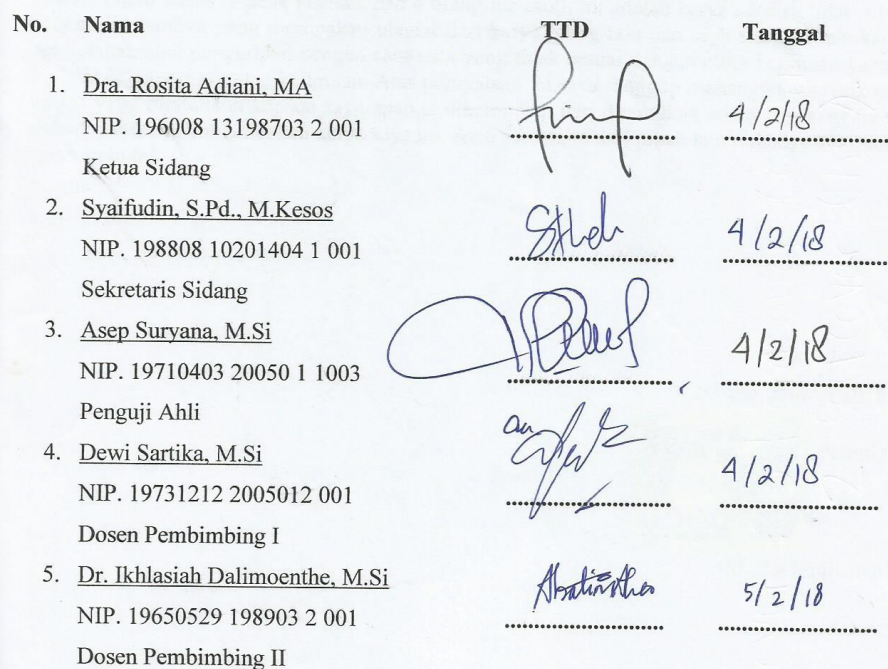 No. Nama TTD Tanggal
1. Dra. Rosita Adiani, MA 4/2/18
NIP. 196008 13198703 2 001
Ketua Sidang
2. Syaifudin, S.Pd., M.Kesos 4/2/18
NIP. 198808 10201404 1 001
Sekretaris Sidang
3. Asep Suryana, M.Si 4/2/18
NIP. 19710403 20050 1 1003
Penguji Ahli
4. Dewi Sartika, M.Si an 4/2/18
NIP. 19731212 2005012 001
Dosen Pembimbing I
5. Dr. Ikhlasiah Dalimoenthe, M.Si 5/2/18
NIP. 19650529 198903 2 001
Dosen Pembimbing II